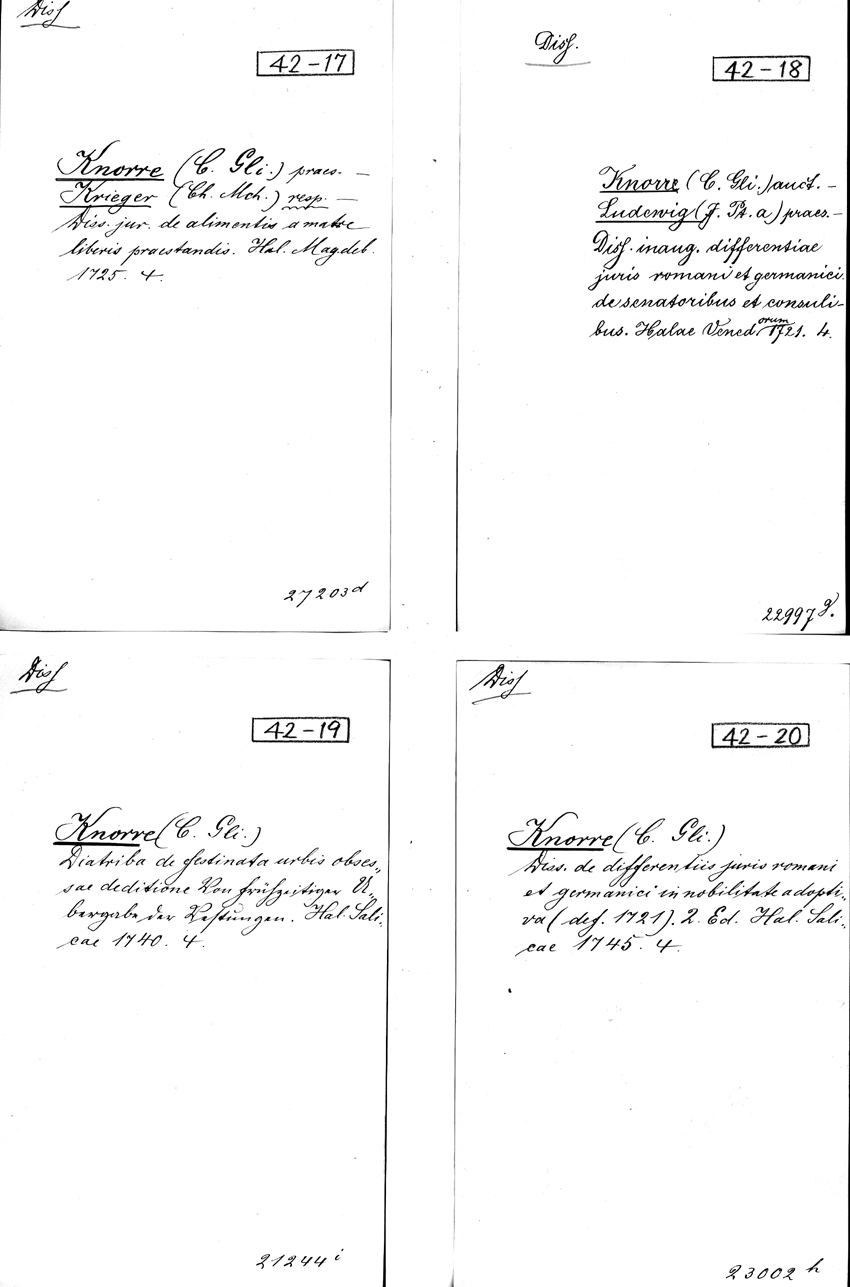 Diss
42-17
Knorre (C. Gli.) praes. –
Krieger (Ch. Mch.) resp. –
Diss. jur. de alimentis a matre
liberis praestandis. Hal. Magdeb.
1725. 4.
27203 d
Diss.
42-18
Knorre (C. Gli.) auct. –
Ludewig (J. Pt. a) praes. –
Diss. inaug. differentiae
juris romani et germanici
de senatoribus et consuli-
bus. Halae Venedorum 1721. 4.
22997 g.
Diss
42-19
Knorre (C. Gli.)
Diatriba de festinata urbis obses„
sae deditione Von frühzeitiger Ü„
bergabe der Vestungen. Hal. Sali„
cae 1740. 4.
21244 i
Diss
42-20
Knorre (C. Gli.)
Diss. de differentiis juris romani
et germanici in nobilitate adopti„
va (def. 1721). 2. Ed. Hal. Sali„
cae 1745. 4.
23002 h